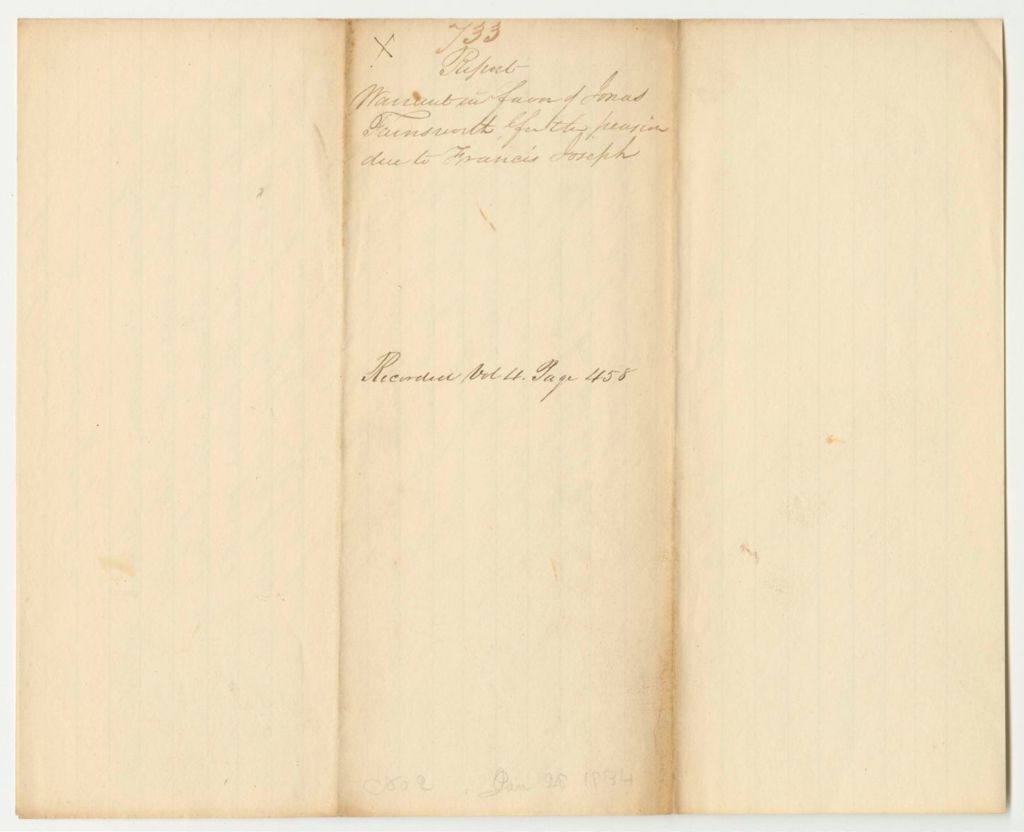 733
X
Report
Warrant in favor of Jonas
Farnsworth, for the pension
due to Francis Joseph
Recorded Vol 4. Page 458
Jan 28 1834